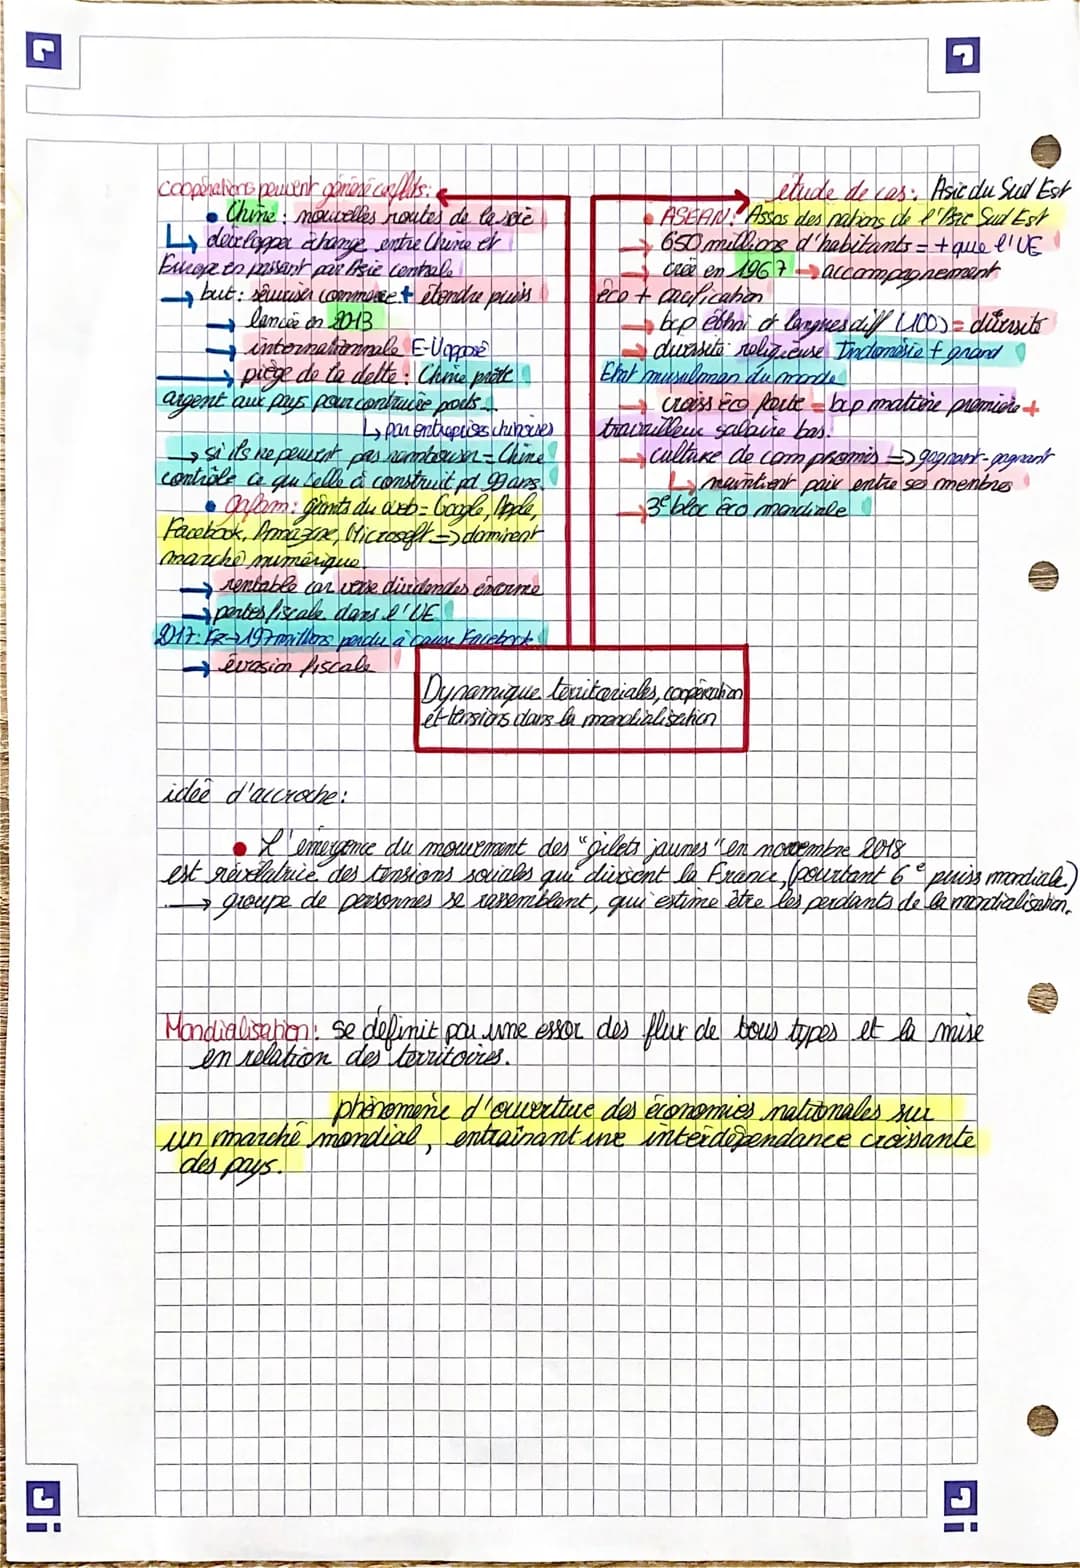 coopérations peuvent génére conflits:
• Chine: nouvelles routes de la soie
↳ développer échange entre Chine et
Europe en passant par Asie centrale
→ but: sécuriser commerce + étendre puiss
→ lancée en 2013
→ internationnale E-U opposé
→ piège de la dette: Chine prête
argent aux pays pour contruire ports...
↳ par entreprises chinoises
→ si ils ne peuvent pas rembourser = Chine
contrôle ce qu'belle à construit pd 99 ans.
• Gafam: géants du web = Google, Apple,
Facebook, Amazone, Microsoft => dominent
marché numérique.
→ rentable car verse dividendes énorme
→ pertes fiscale dans l'UE
2017: Fr → 197 millions perdu à cause Facebook
→ évasion fiscale
étude de cas: Asie du Sud Est
• ASEAN: Assos des nations de l'Asie Sud Est
→ 650 millions d'habitants = + que l'UE
→ créé en 1967 → accompagnement
éco + pacification
→ bcp ethni et langues diff (100) = diversité
→ diversité religieuse Indonésie + grand
Etat musulman du monde
→ croiss éco forte = bcp matière première +
travailleur salaire bas.
→ culture de compromis => gagnant-gagnant
↳ maintient paix entre ses membres
→ 3e bloc éco mondiale
Dynamique territoriales, coopération
et tensions dans la mondialisation
idée d'accroche:
• L'émergence du mouvement des "gilets jaunes" en novembre 2018
est révélatrice des tensions sociales qui divisent la France, (pourtant 6e puiss mondiale)
→ groupe de personnes se rassemblant, qui estime être les perdants de la mondialisation.
Mondialisation: se définit par une essor des flux de tous types et la mise
en relation des territoires.
phénomène d'ouverture des économies nationales sur
un marché mondial, entrainant une interdépendance croissante
des pays.